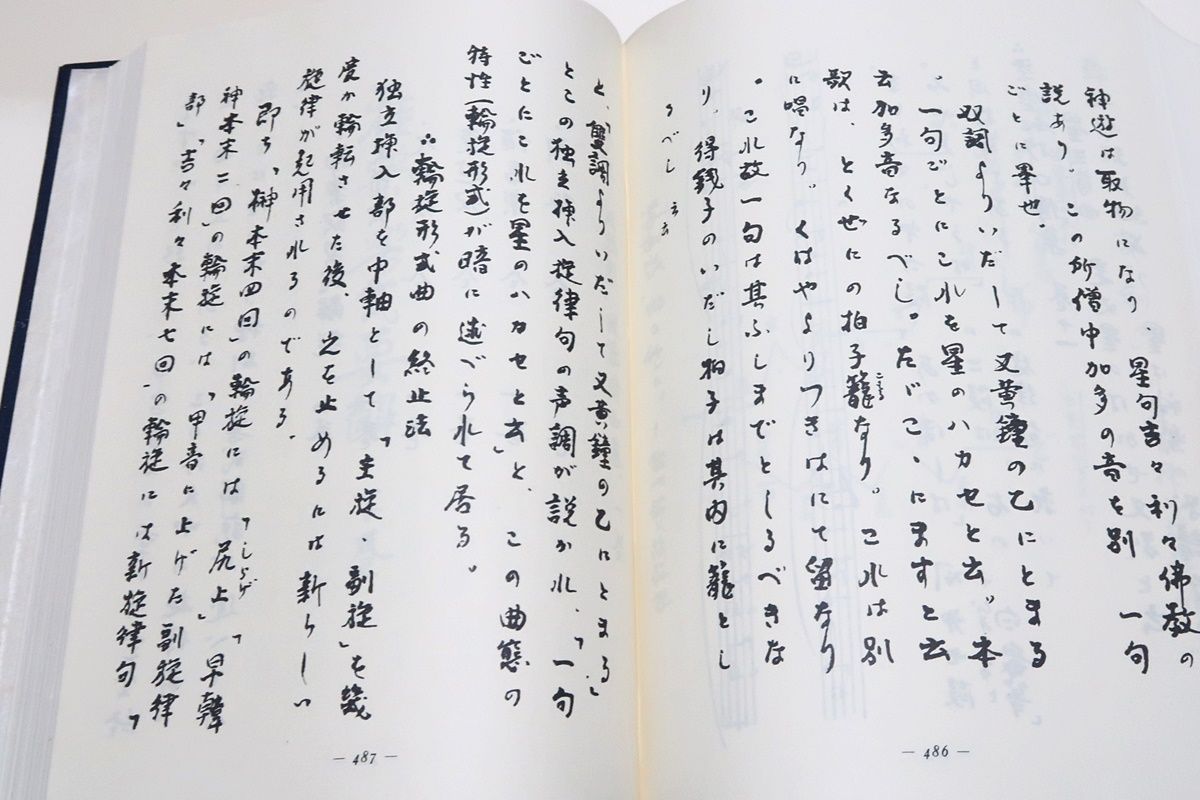 神遊は取物になり、星句吉々利々佛教の
説あり。この所僧中加多の音を別 一句
ごとに挙也。
双調よりいだーて又黄鐘の乙にとまる
。一句ごとにこれを星のハカセと云〟本
云加多音なるべし。たゞこゝにますと云
歌は、とくぜにの拍子籠なり。これは別
こもる
に唱なり。くはやよりつきはにて留なり
。これ故一句は其ふしまでとしるべきな
り、得銭子のいだし拍子は其内に籠とし
るべし 云云
— 486 —
と、「雙調よりいだして又黄鐘の乙にとまる」
とこの独立挿入旋律句の声調が説かれ、「一句
ごとにこれを星のハカセと云」と、この曲態の
特性(輪旋形式)が暗に述べられて居る。
∴輪旋形式曲の終止法
独立挿入部を中軸として「主旋、副旋」を幾
度か輪転させた後、之を止めるには新らしい
旋律が起用されるのである。
即ち、「榊本末四回」の輪旋には「尻上」「早韓
しらげ
神本末二回」の輪旋には「甲音に上げた副旋律
部」「吉々利々本末七回」の輪旋には新旋律句「
— 487 —